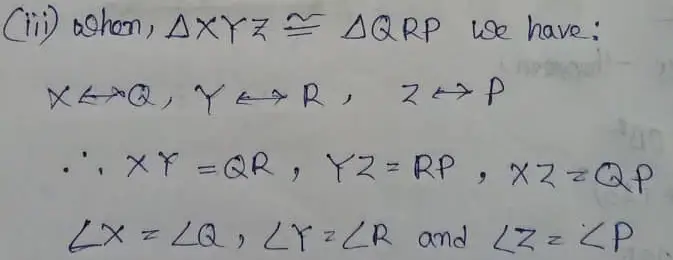 (iii) when, ΔXYZ ≅ ΔQRP we have:
X↔Q, Y↔R, Z↔P
∴ XY = QR, YZ = RP, XZ = QP
∠X = ∠Q, ∠Y = ∠R and ∠Z = ∠P